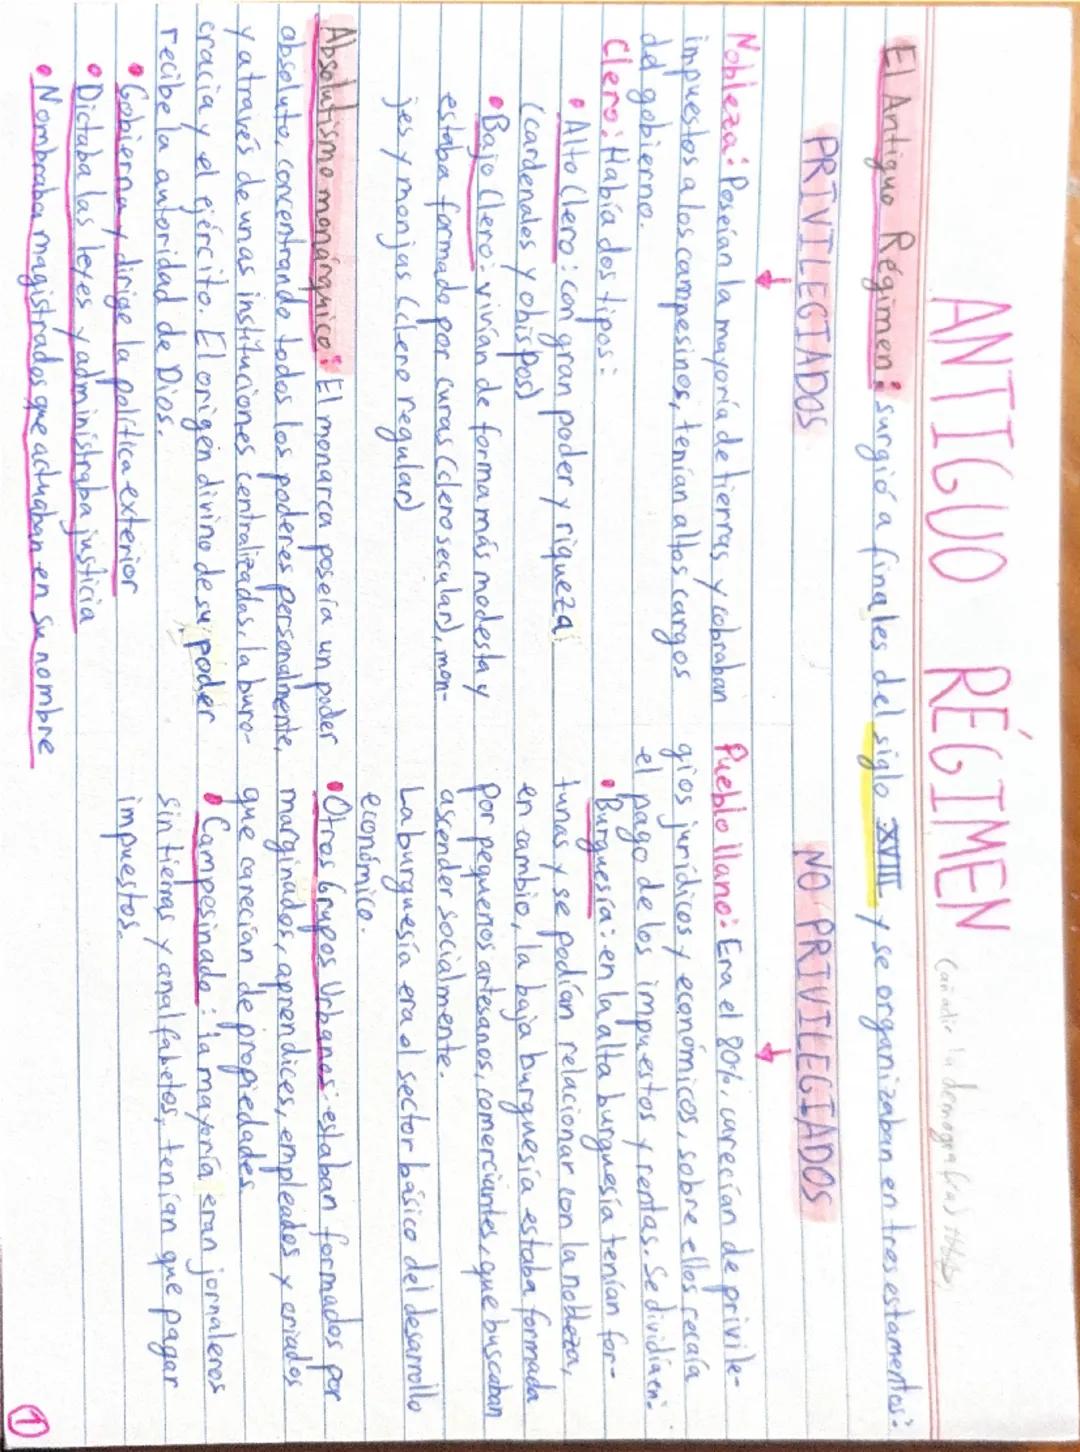 ANTIGUO RÉGIMEN (añadir la demografía)
El Antiguo Régimen: surgió a finales del siglo XVIII y se organizaban en tres estamentos:
PRIVILEGIADOS
Nobleza: Poseían la mayoría de tierras y cobraban
impuestos a los campesinos, tenían altos cargos
del gobierno.
Clero: Había dos tipos:
• Alto Clero: con gran poder y riqueza
(cardenales y obispos)
• Bajo Clero: vivían de forma más modesta y
estaba formado por curas (clero secular), mon-
jes y monjas (clero regular)
Absolutismo monárquico: El monarca poseía un poder
absoluto, concentrando todos los poderes personalmente,
y a través de unas instituciones centralizadas, la buro-
cracia y el ejército. El origen divino de su poder
recibe la autoridad de Dios.
• Gobierna y dirige la política exterior
• Dictaba las leyes y administraba justicia
• Nombraba magistrados que actuaban en su nombre
NO PRIVILEGIADOS
Pueblo llano: Era el 80%, carecían de privile-
gios jurídicos y económicos, sobre ellos recaía
el pago de los impuestos y rentas. Se dividí en:
• Burguesía: en la alta burguesía tenían for-
tunas y se podían relacionar con la nobleza,
en cambio, la baja burguesía estaba formada
por pequeños artesanos, comerciantes, que buscaban
ascender socialmente.
La burguesía era el sector básico del desarrollo
económico.
• Otros Grupos Urbanos: estaban formados por
marginados, aprendices, empleados y criados
que carecían de propiedades.
• Campesinado: la mayoría eran jornaleros
sin tierras y analfabetos, tenían que pagar
impuestos.
1